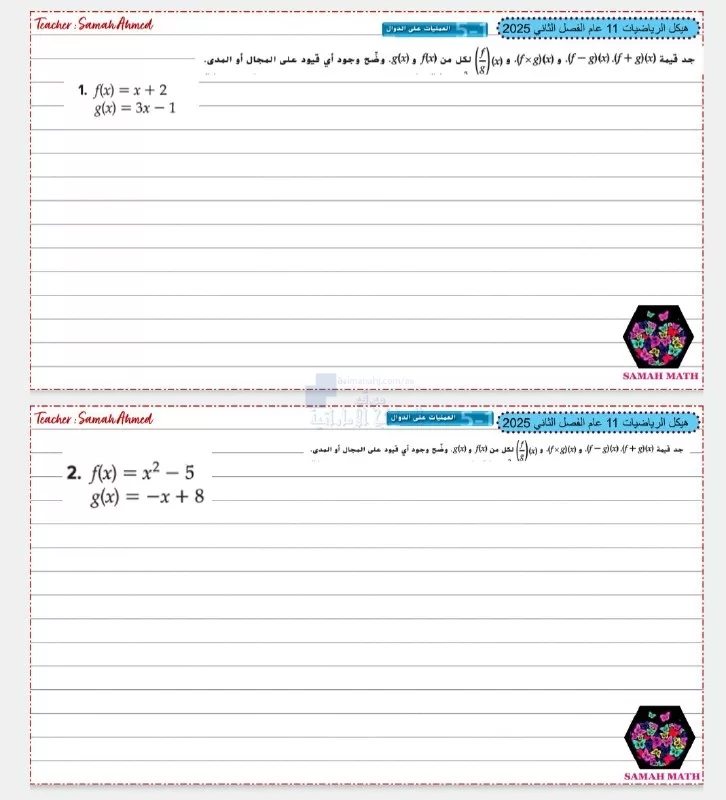 Teacher : Samah Ahmed
العمليات على الدوال 5-1
هيكل الرياضيات 11 عام الفصل الثاني 2025
جد قيمة (f + g)(x)، (f − g)(x) و (f × g)(x)، و (f/g)(x) لكل من f(x) و g(x). وضّح وجود أي قيود على المجال أو المدى.
1. f(x) = x + 2
g(x) = 3x − 1
SAMAH MATH
almanahj.com/ae
موقع
المناهج الإماراتية
Teacher : Samah Ahmed
العمليات على الدوال 5-1
هيكل الرياضيات 11 عام الفصل الثاني 2025
جد قيمة (f + g)(x)، (f − g)(x) و (f × g)(x)، و (f/g)(x) لكل من f(x) و g(x). وضّح وجود أي قيود على المجال أو المدى.
2. f(x) = x² − 5
g(x) = −x + 8
SAMAH MATH